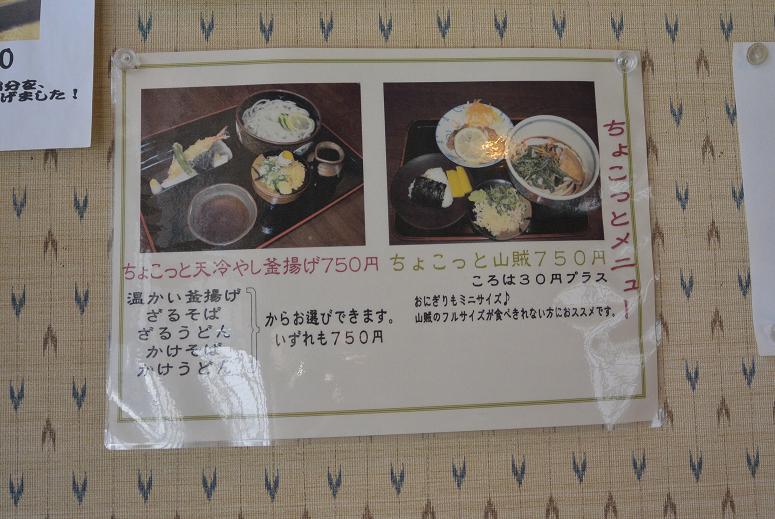 0
分を、
げました！
ちょこっとメニュー！
ちょこっと天冷やし釜揚げ750円
温かい釜揚げ
ざるそば
ざるうどん
かけそば
かけうどん
からお選びできます。
いずれも750円
ちょこっと山賊750円
ころは30円プラス
おにぎりもミニサイズ♪
山賊のフルサイズが食べきれない方におススメです。